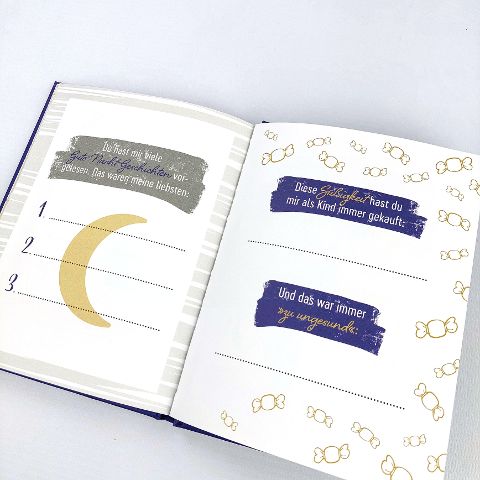 Du hast mir viele
Gute-Nacht-Geschichten vor-
gelesen. Das waren meine liebsten:
1
2
3
Diese Süßigkeit hast du
mir als Kind immer gekauft:
Und das war immer
»zu ungesund«: